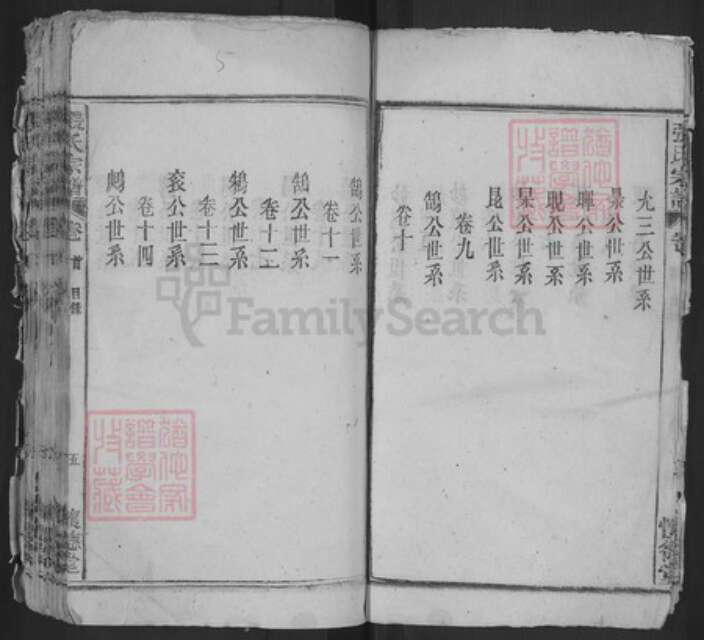 尤三公世系
晜公世系
暉公世系
晛公世系
杲公世系
昆公世系
卷九
鵠公世系
卷十
鵠公世系
卷十一
鵠公世系
卷十二
鵷公世系
卷十三
袞公世系
卷十四
鷴公世系
張氏宗譜 卷首 目錄 五 懷德堂
5
FamilySearch